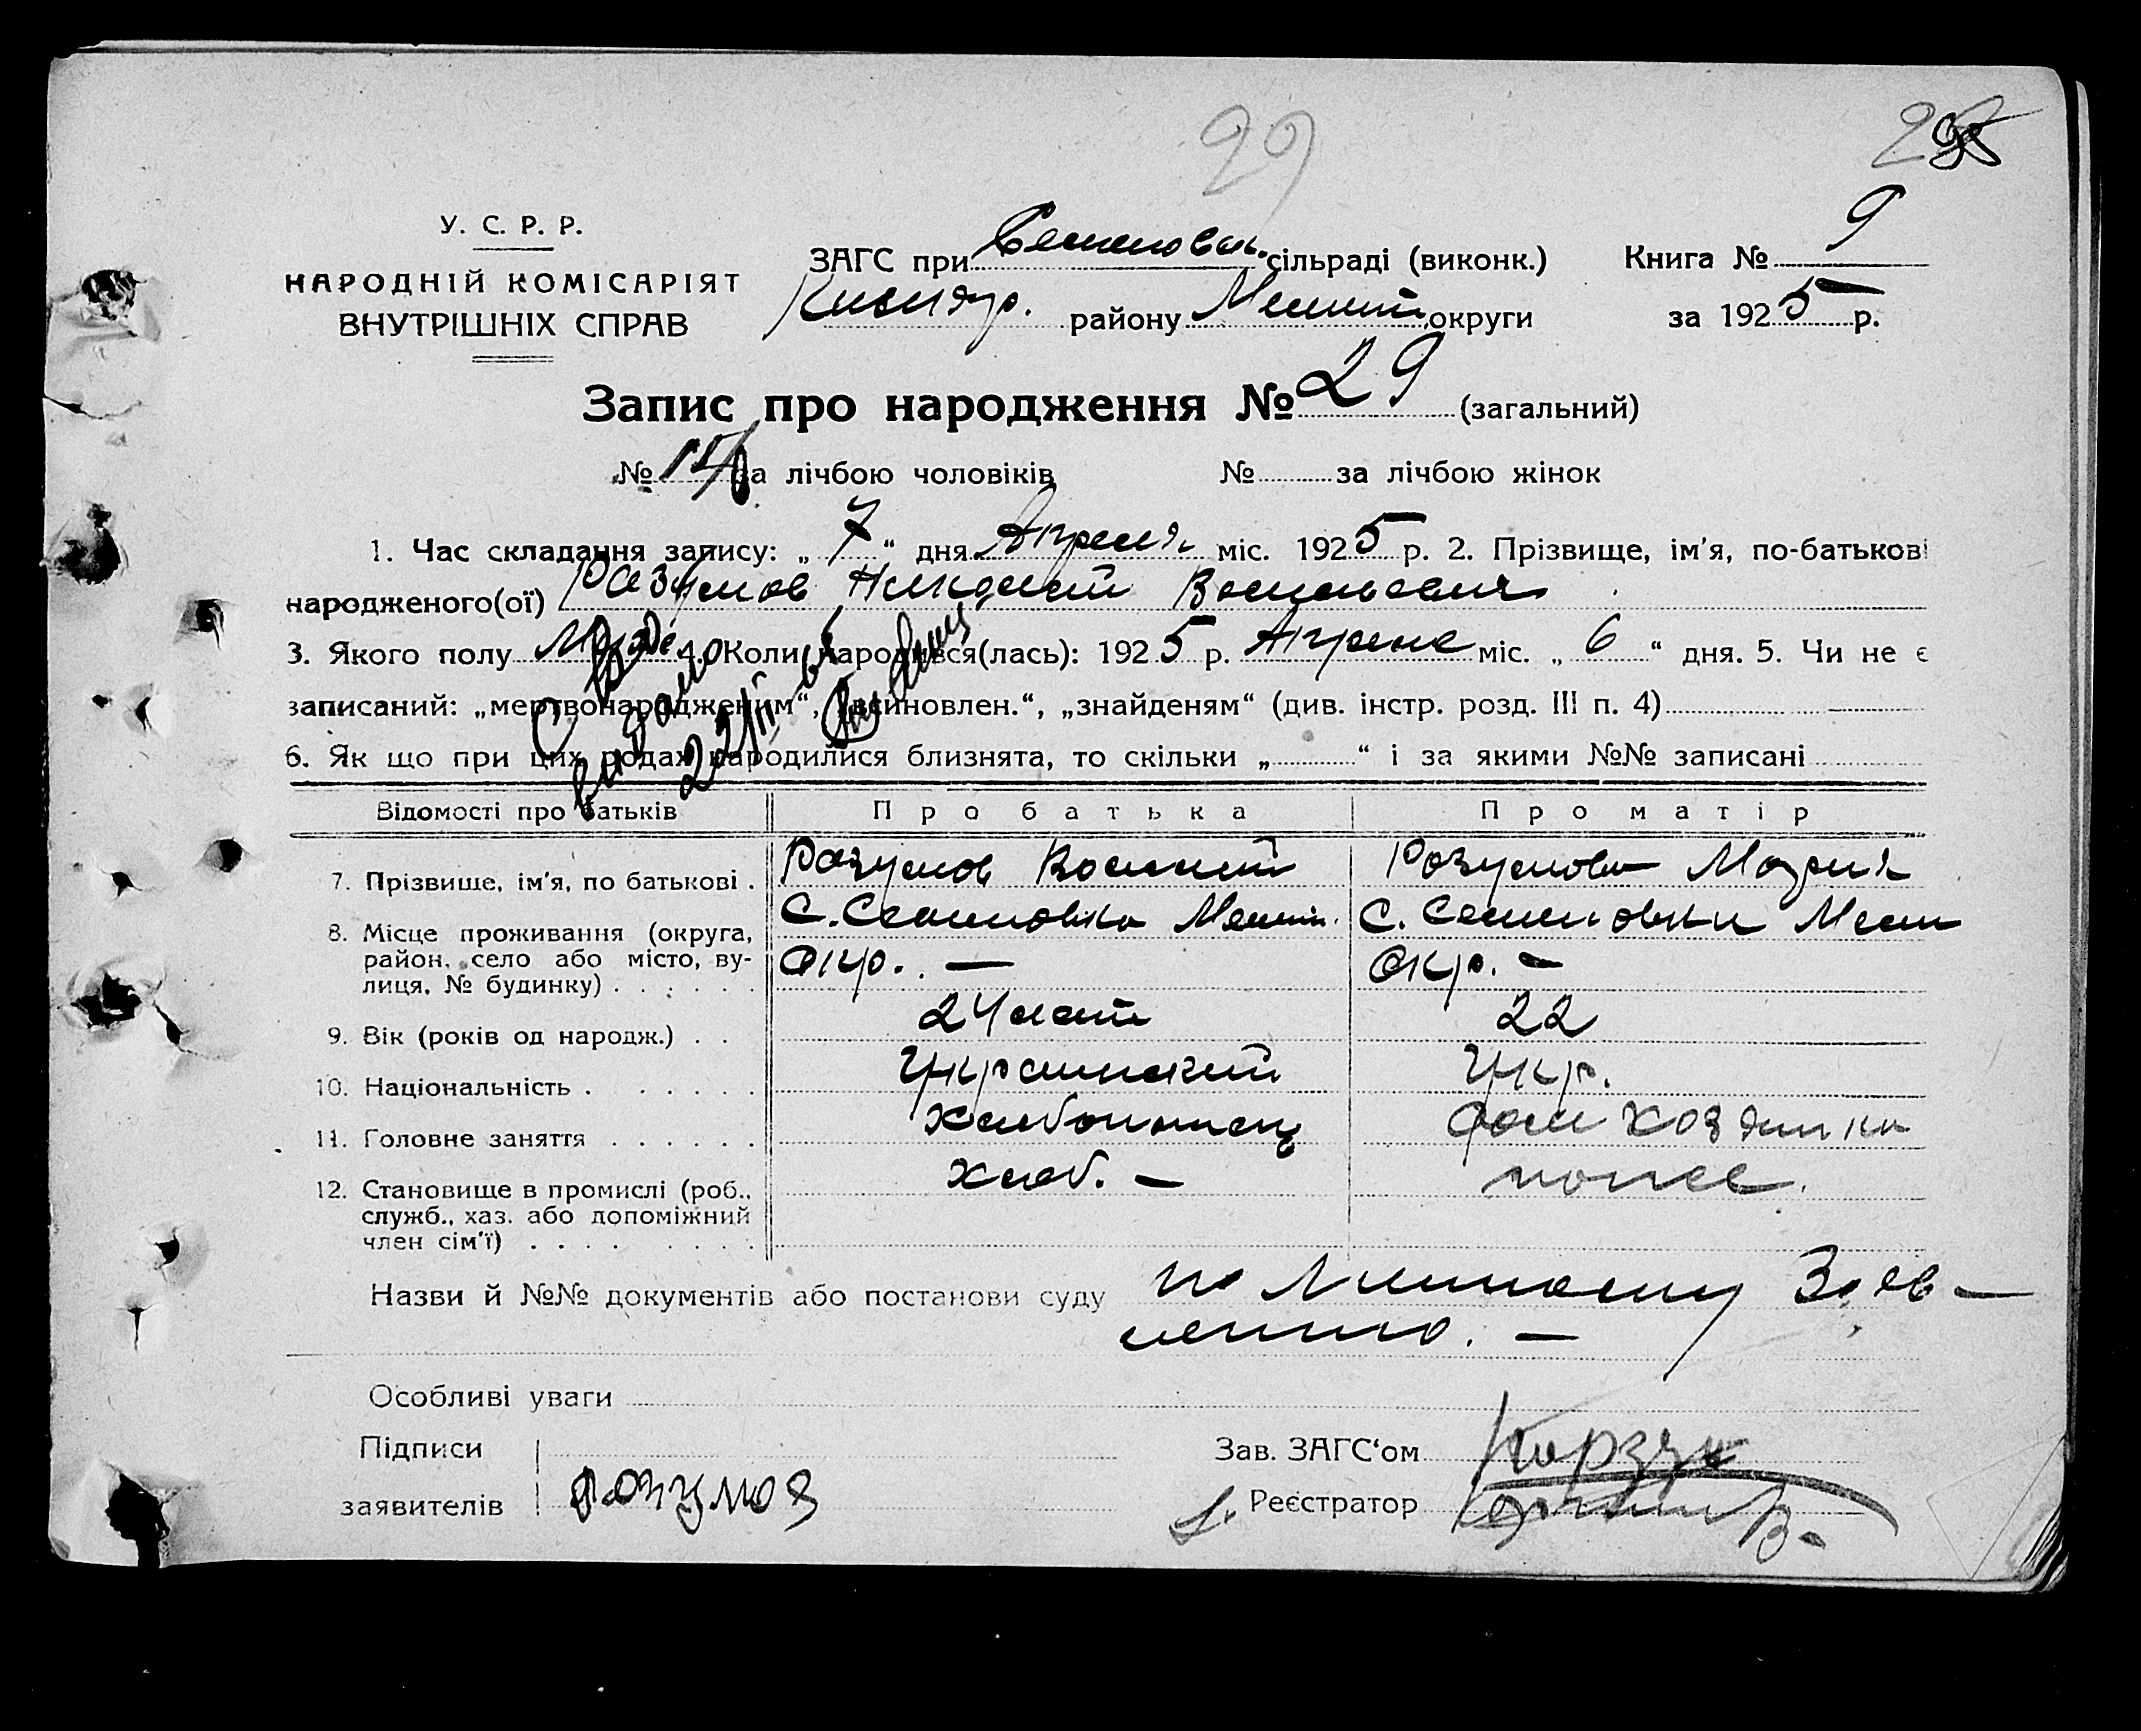 29
У. С. Р. Р.
НАРОДНІЙ КОМІСАРІЯТ
ВНУТРІШНІХ СПРАВ
ЗАГС при Семеновск. сільраді (виконк.)
району Мелит округи
Книга № 9
за 1925 р.
Запис про народження № 29 (загальний)
№ за лічбою чоловіків № за лічбою жінок
1. Час складання запису: „7“ дня Апреля міс. 1925 р. 2. Прізвище, ім'я, по-батькові
народженого(ої) Разумов Николай Васильевич
3. Якого полу 4. Коли народився(лась): 1925 р. Апреле міс. „6“ дня. 5. Чи не є
записаний: „мертвонародженим“, „всиновлен.“, „знайденям“ (див. інстр. розд. III п. 4)
6. Як що при цих родах народилися близнята, то скільки „ “ і за якими №№ записані
Відомості про батьків Про батька Про матір
7. Прізвище, ім'я, по батькові . Разумов Василий Разумова Мария
8. Місце проживання (округа, С. Семеновка Мелит. С. Семеновки Мели
район, село або місто, ву- Окр. — Окр. —
лиця, № будинку) . . . . . .
9. Вік (років од народж.) . . 24 лет 22
10. Національність . . . . . . Украинский Укр.
11. Головне заняття . . . . . . Хлебопашец Дом хозяйка
12. Становище в промислі (роб., Хлеб. —
служб., хаз. або допоміжний
член сім'ї) . . . . . . . .
Назви й №№ документів або постанови суду по Личному Заяв—
лению. —
Особливі уваги
Підписи
заявителів Розумов
Зав. ЗАГС'ом
Реєстратор